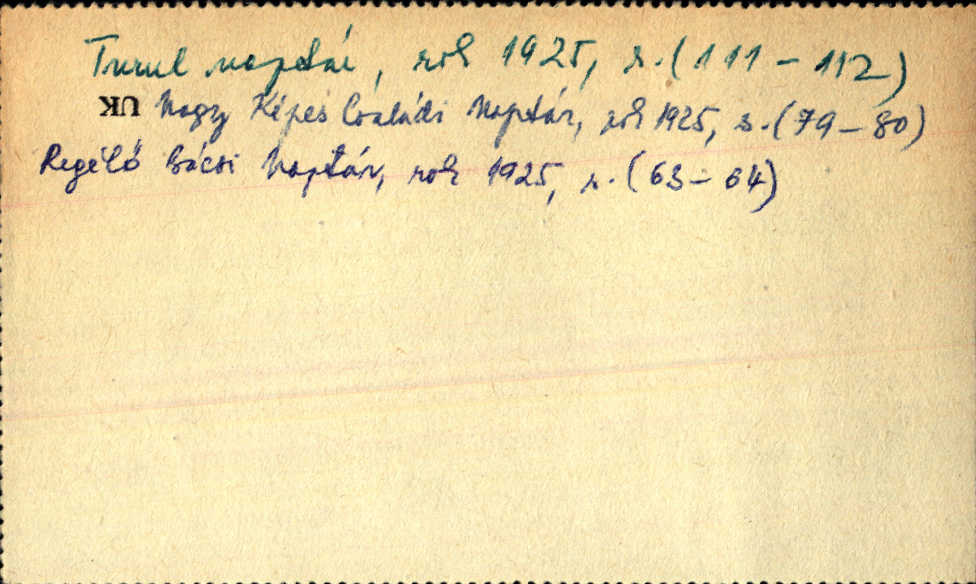 Turul naptár, rok 1925, s. (111-112)
UK Nagy Képes Családi Naptár, rok 1925, s. (79-80)
Regélő Bácsi Naptár, rok 1925, s. (63-64)